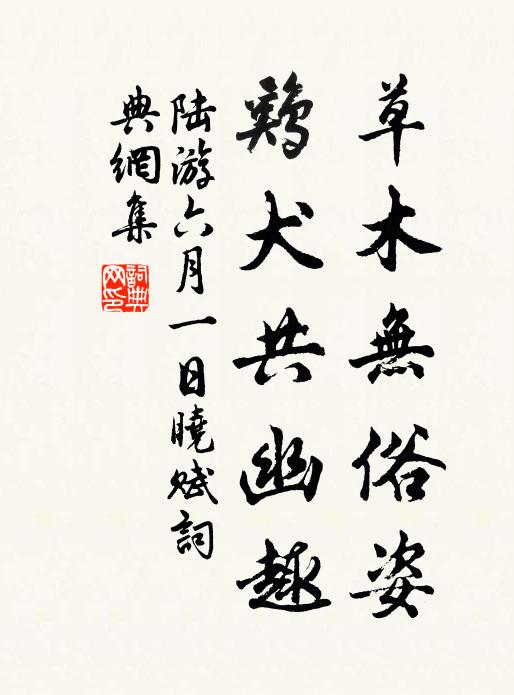 草木無俗姿
鷄犬共幽趣
陆游六月一日曉赋詞
典網集
詞典网印